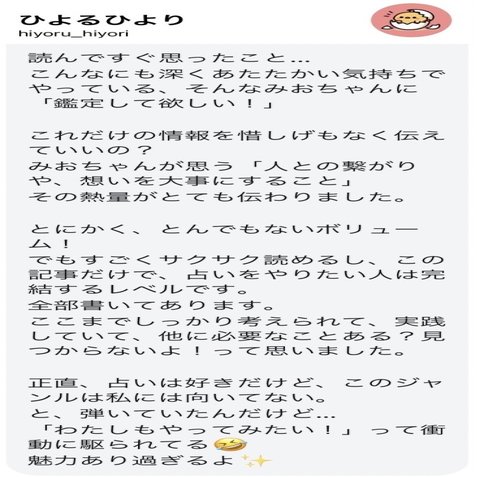 ひよるひより
hiyoru_hiyori
読んですぐ思ったこと…
こんなにも深くあたたかい気持ちで
やっている、そんなみおちゃんに
「鑑定して欲しい！」
これだけの情報を惜しげもなく伝え
ていいの？
みおちゃんが思う「人との繋がり
や、想いを大事にすること」
その熱量がとても伝わりました。
とにかく、とんでもないボリュー
ム！
でもすごくサクサク読めるし、この
記事だけで、占いをやりたい人は完
結するレベルです。
全部書いてあります。
ここまでしっかり考えられて、実践
していて、他に必要なことある？見
つからないよ！って思いました。
正直、占いは好きだけど、このジャ
ンルは私には向いてない。
と、弾いていたんだけど…
「わたしもやってみたい！」って衝
動に駆られてる🤣
魅力あり過ぎるよ✨